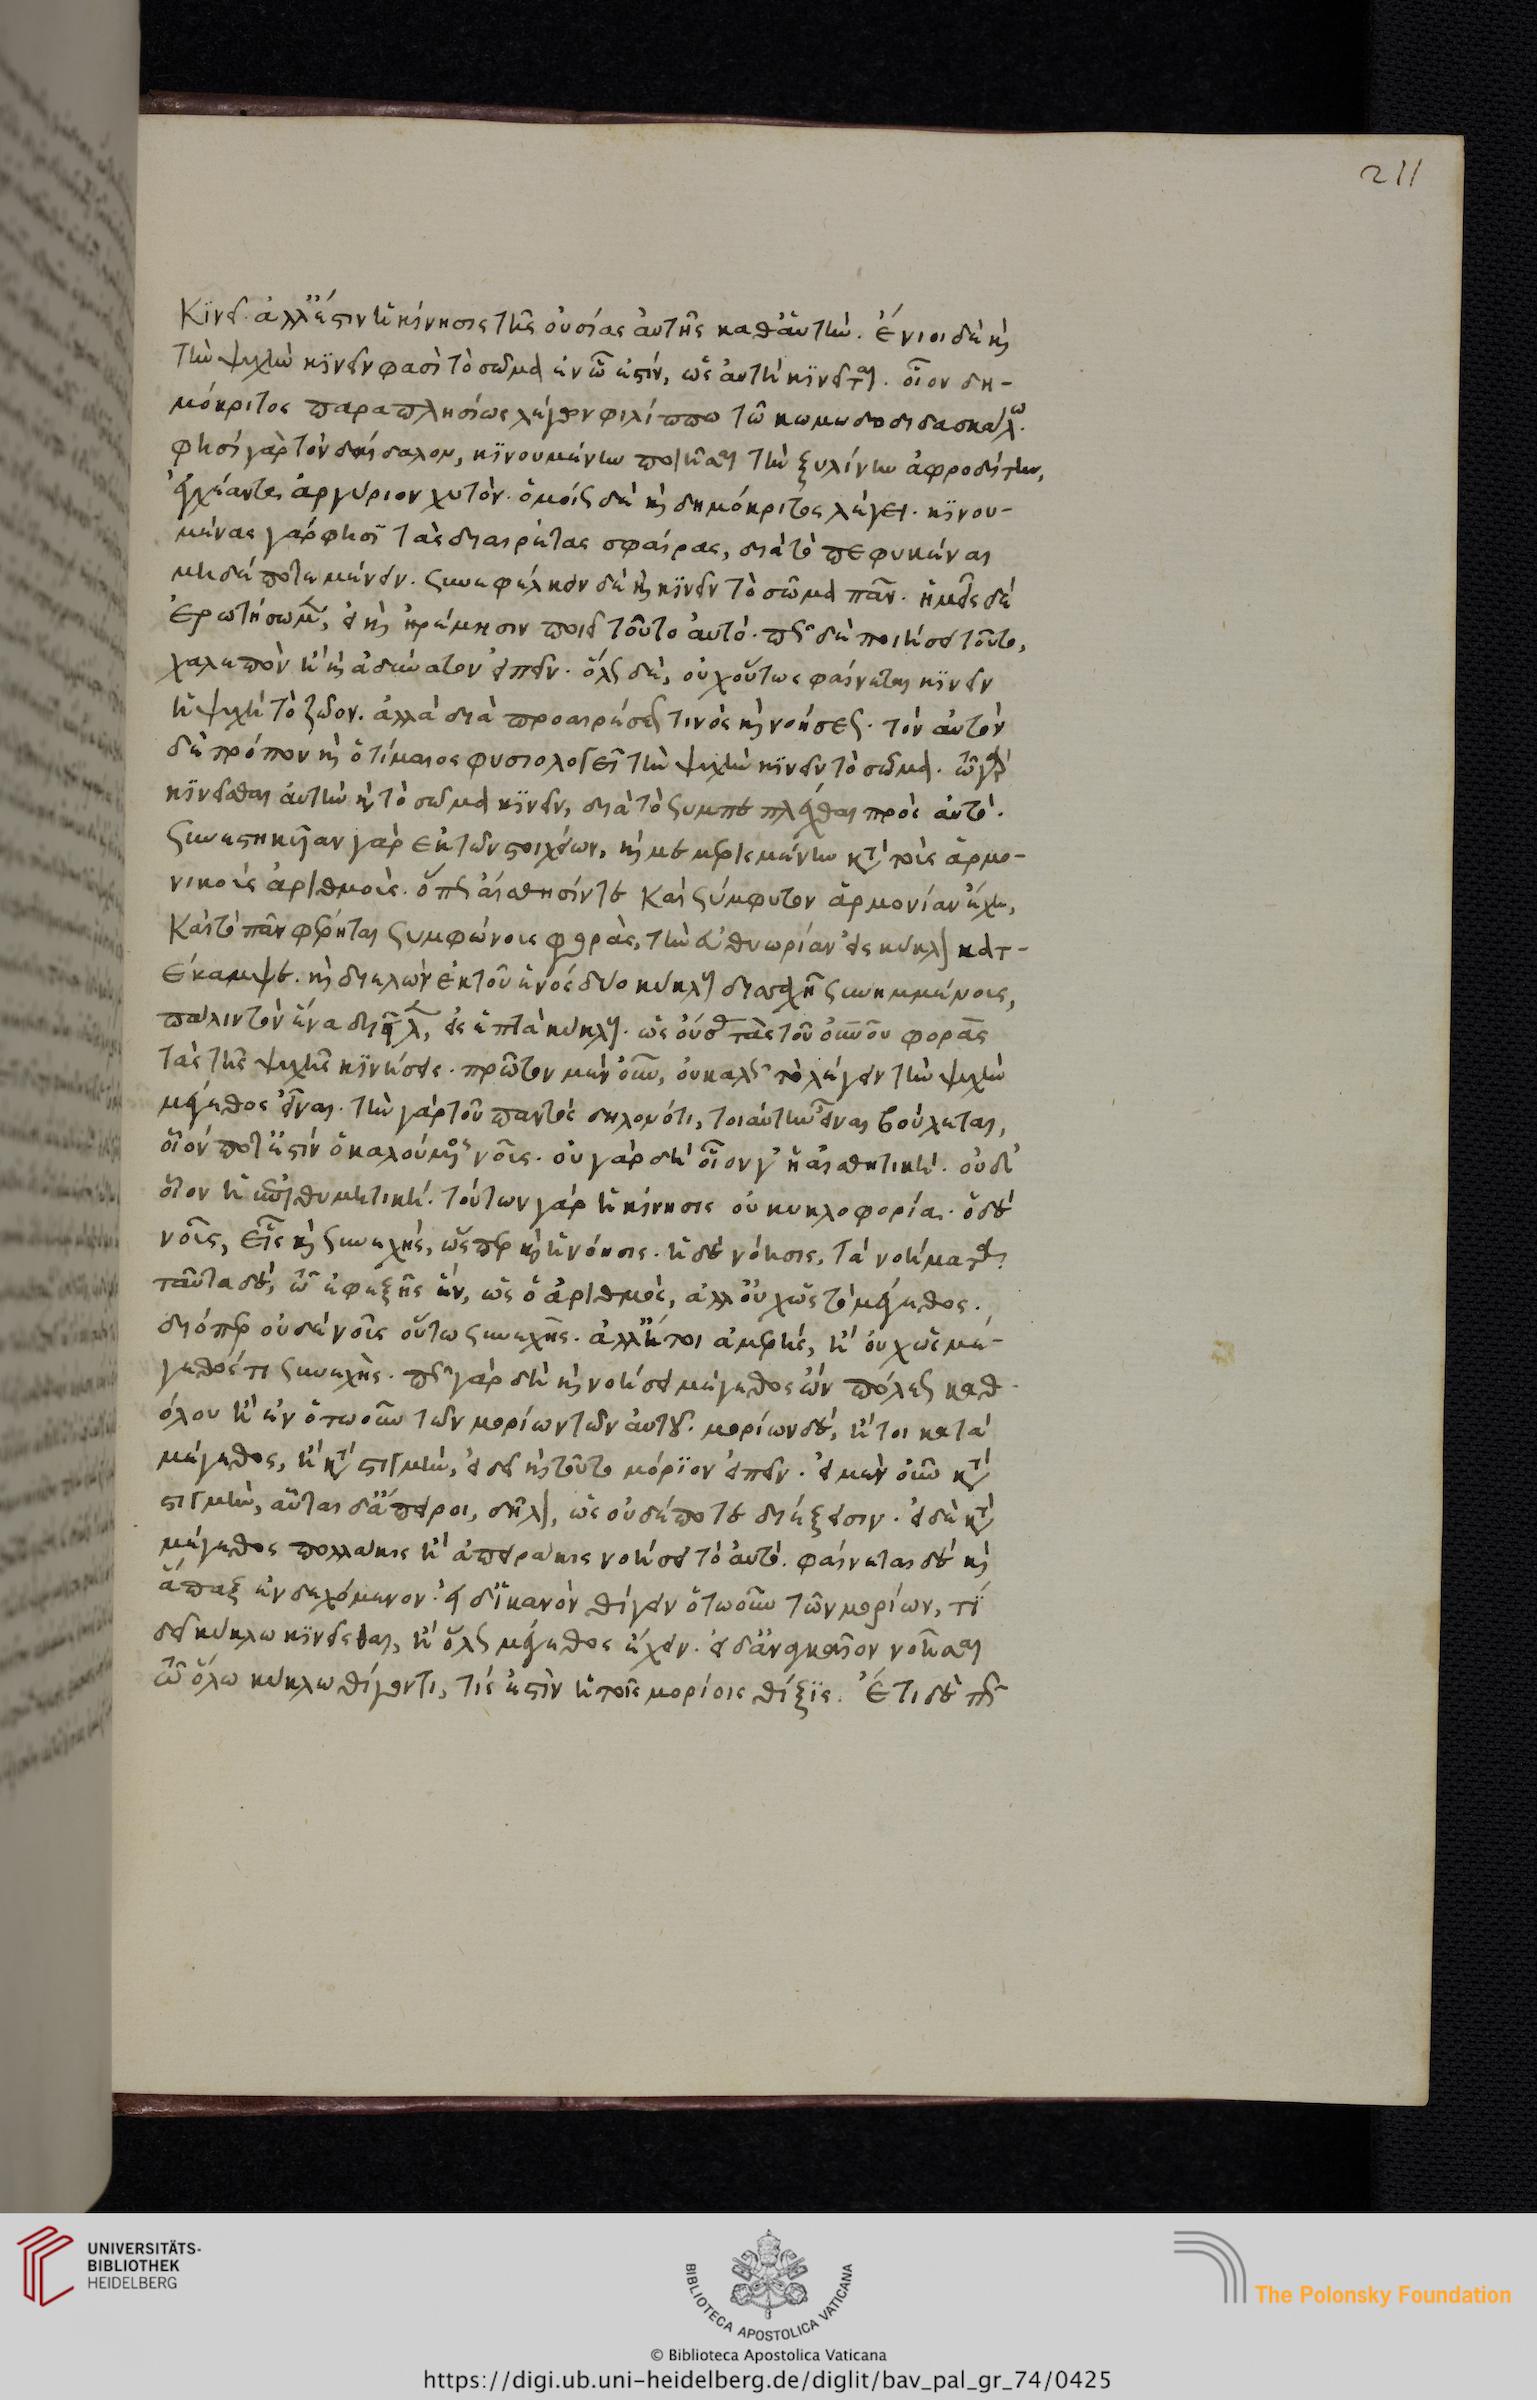 Κϊνεῖ. ἀλλ' ἔστιν ἡ κίνησις τῆς οὐσίας αὐτῆς καθ' αὑτήν. ἔνιοι δὲ καὶ
τὴν ψυχὴν κϊνεῖν φασὶ τὸ σῶμα ἐν ᾧ ἐστίν, ὡς αὐτὴ κϊνεῖται. οἷον δη-
μόκριτος παραπλησίως λέγων φιλίππω τῶ κωμωδοδιδασκάλω.
φησὶ γὰρ τὸν δαίδαλον, κϊνουμένην ποιῆσαι τὴν ξυλίνην ἀφροδίτην,
ἐγχέαντα ἀργύριον χυτόν. ὁμοίως δὲ καὶ δημόκριτος λέγει. κϊνου-
μένας γάρ φησι τὰς διαιρέτας σφαίρας, διὰ τὸ πεφυκέναι
μηδέποτε μένειν. συνεφέλκειν δὲ καὶ κϊνεῖν τὸ σῶμα πᾶν. ἡμεῖς δὲ
ἐρωτήσωμεν, εἰ καὶ ἠρέμησιν ποιεῖ τοῦτο αὐτό. πῶς δὲ ποιήσει τοῦτο,
χαλεπὸν ἢ καὶ ἀδύνατον εἰπεῖν. ὅλως δὲ, οὐχ οὕτως φαίνεται κϊνεῖν
ἡ ψυχὴ τὸ ζῶον. ἀλλὰ διὰ προαιρέσεως τινὸς καὶ νοήσεως. τὸν αὐτὸν
δὲ τρόπον καὶ ὁ τίμαιος φυσιολογεῖ τὴν ψυχὴν κϊνεῖν τὸ σῶμα. τῶ γὰρ
κϊνεῖσθαι αὐτὴν καὶ τὸ σῶμα κϊνεῖν, διὰ τὸ συμπεπλέχθαι πρὸς αὐτό.
συνεστηκυῖαν γὰρ ἐκ τῶν στοιχείων, καὶ μεμερισμένην κατὰ τοὺς ἁρμο-
νικοὺς ἀριθμοὺς. ὅπως αἴσθησίν τε καὶ σύμφυτον ἁρμονίαν ἔχη,
καὶ τὸ πᾶν φέρηται συμφώνους φορὰς, τὴν εὐθυωρίαν εἰς κύκλον κατ-
έκαμψε. καὶ διελὼν ἐκ τοῦ ἑνὸς δύο κύκλους δισσαχῆ συνημμένους,
πάλιν τὸν ἕνα διεῖλεν, εἰς ἑπτὰ κύκλους. ὡς οὔσας τὰς τοῦ οὐρανοῦ φορὰς
τὰς τῆς ψυχῆς κϊνήσεις. πρῶτον μὲν οὖν, οὐ καλῶς τὸ λέγειν τὴν ψυχὴν
μέγεθος εἶναι. τὴν γὰρ τοῦ παντὸς δηλονότι, τοιαύτην εἶναι βούλεται,
οἷόν ποτ' ἐστὶν ὁ καλούμενος νοῦς. οὐ γὰρ δὴ οἷον γ' ἡ αἰσθητική. οὐδ'
οἷον ἡ ἐπιθυμητική. τούτων γὰρ ἡ κίνησις οὐ κυκλοφορία. ὁ δὲ
νοῦς, εἷς καὶ συνεχής, ὥσπερ καὶ ἡ νόησις. ἡ δὲ νόησις, τὰ νοήματα.
ταῦτα δὲ, τῶ ἐφεξῆς ἕν, ὡς ὁ ἀριθμός, ἀλλ' οὐχ ὡς τὸ μέγεθος.
διόπερ οὐδὲ νοῦς οὕτω συνεχής. ἀλλ' ἤτοι ἀμερής, ἢ οὐχ ὡς μέ-
γεθός τι συνεχὴς. πῶς γὰρ δὴ καὶ νοήσει μέγεθος ὢν πότερως καθ-
όλου ἢ ἐν ὁτωοῦν τῶν μορίων τῶν αὐτοῦ. μορίων δὲ, ἤτοι κατὰ
μέγεθος, ἢ κατὰ στιγμὴν, εἰ δεῖ καὶ τοῦτο μόριον εἰπεῖν. εἰ μὲν οὖν κατὰ
στιγμὴν, αὗται δ' ἄπειροι, δῆλον, ὡς οὐδέποτε διέξεισιν. εἰ δὲ κατὰ
μέγεθος πολλάκις ἢ ἀπειράκις νοήσει τὸ αὐτό. φαίνεται δὲ καὶ
ἅπαξ ἐνδεχόμενον. εἰ δ' ἱκανὸν θίγειν ὁτωοῦν τῶν μορίων, τί
δεῖ κύκλω κϊνεῖσθαι, ἢ ὅλως μέγεθος ἔχειν. εἰ δ' ἀναγκαῖον νοῆσαι
τῶ ὅλω κύκλω θίγοντι, τίς ἐστὶν ἡ τοῖς μορίοις θίξϊς. Ἔτι δὲ πῶς
211
UNIVERSITÄTS-
BIBLIOTHEK
HEIDELBERG
BIBLIOTECA APOSTOLICA VATICANA
The Polonsky Foundation
© Biblioteca Apostolica Vaticana
https://digi.ub.uni-heidelberg.de/diglit/bav_pal_gr_74/0425